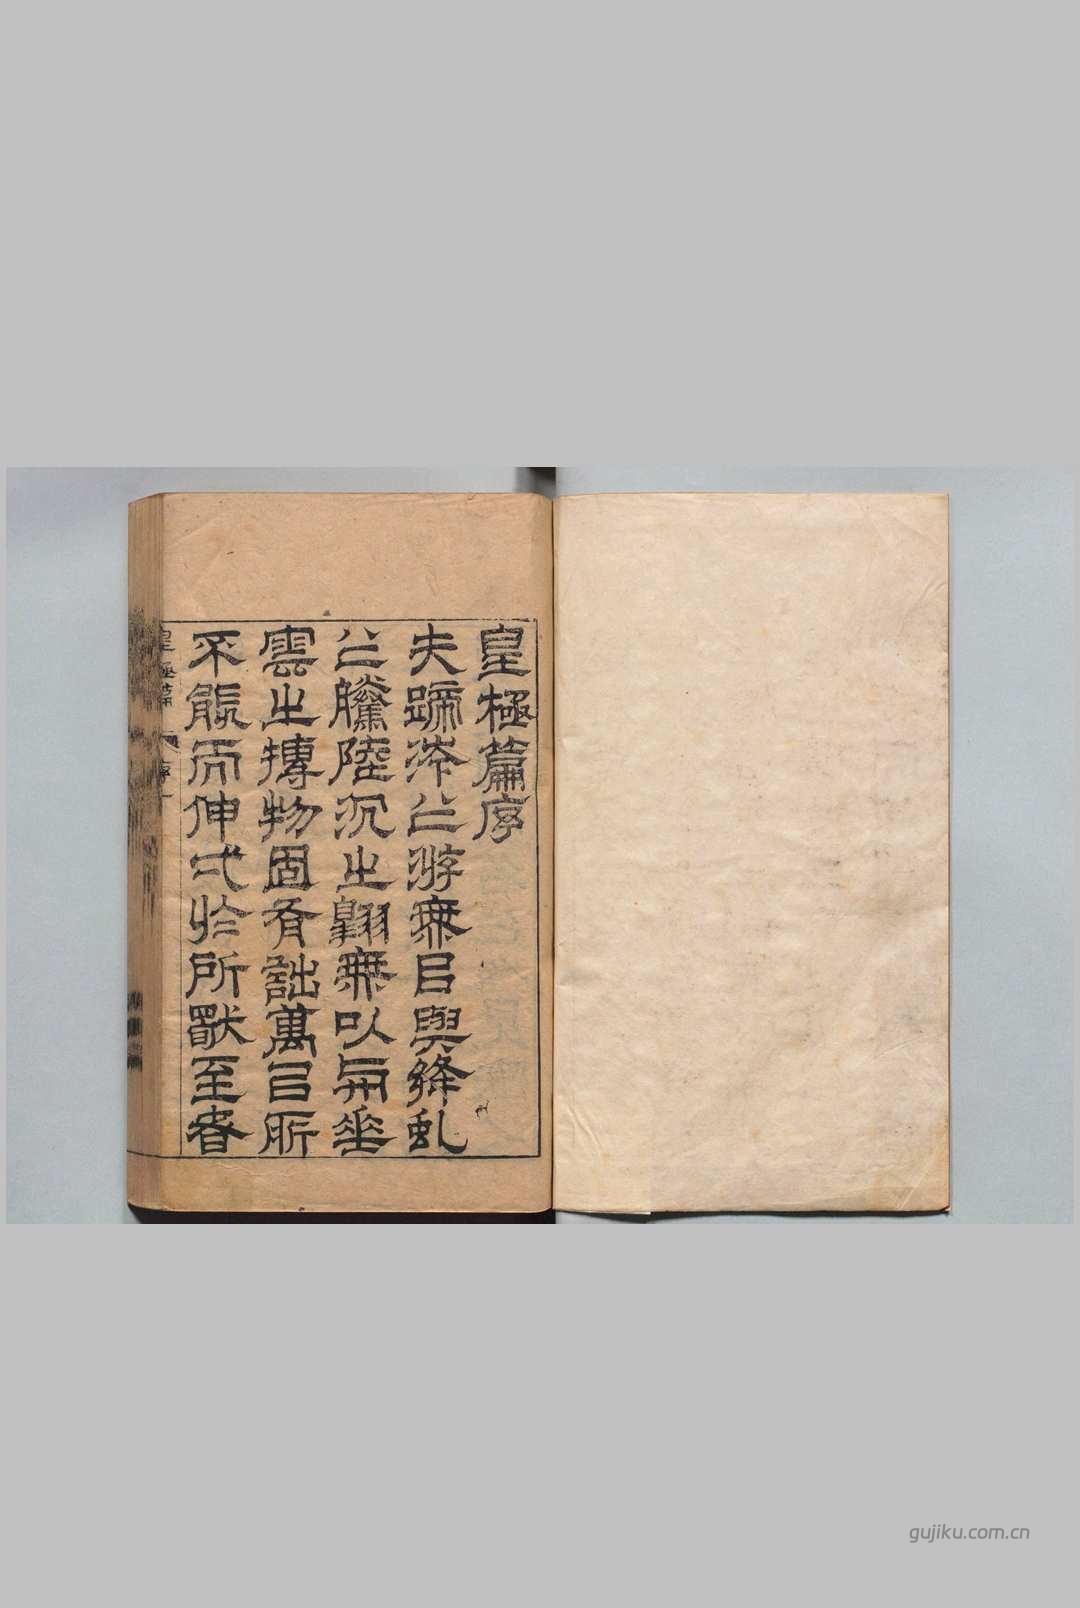 皇極篇序
夫蹏涔之游無㠯與絳虬
之騰陸沉之翱無以扇垂
雲之摶物固有詘萬㠯所
不能而伸弌於所獨至者
皇極篇 序 一
gujiku.com.cn